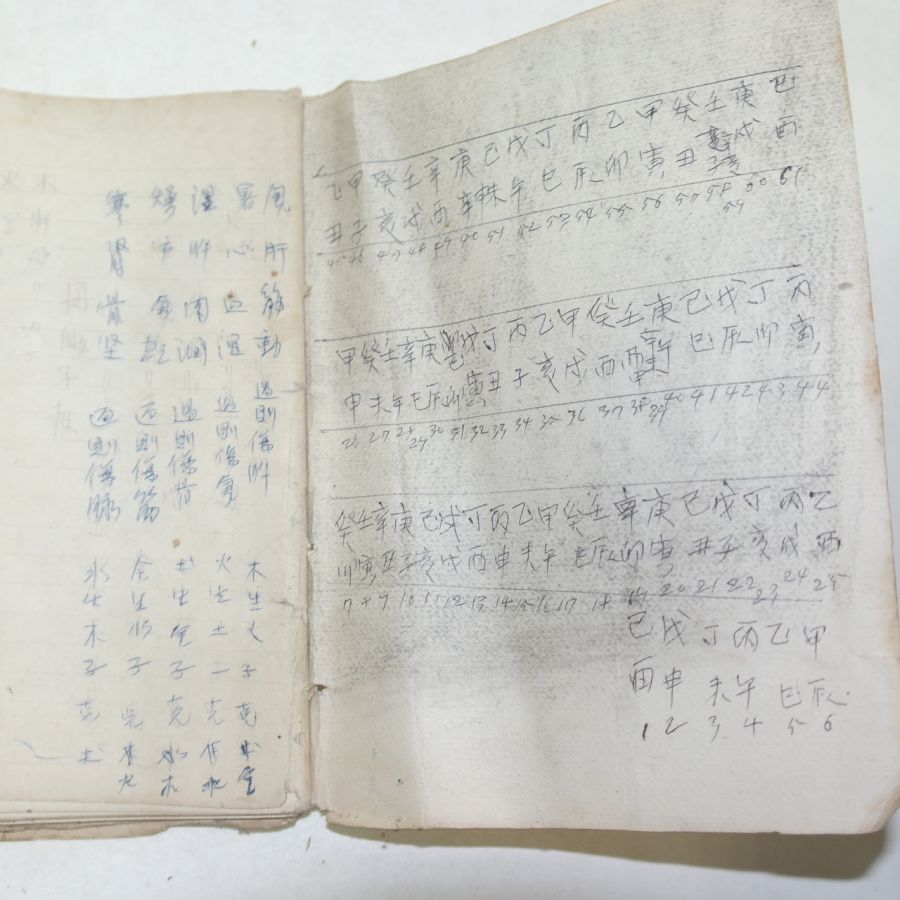 風肝筋動過則傷肝木生火子克
暑心血溫過則傷氣火生土一克
濕肝肉潤過則傷骨土生金子克水木
燥市氣乾過則傷筋金生水子克木火
寒腎骨坚過則傷脉水生木子克土
乙甲癸壬辛庚己戊丁丙乙甲癸壬庚己
丑子亥戌酉未午巳辰卯寅丑子亥戌酉
45 46 47 48 49 50 51 52 53 54 55 56 57 58 59 60 61
甲癸壬辛庚戊丁丙乙甲癸壬庚己戊丁丙
申未午巳辰卯寅丑子亥戌酉巳辰卯寅
26 27 28 29 30 31 32 33 34 35 36 37 38 39 40 41 42 43 44
癸壬辛庚己戊丁丙乙甲癸壬辛庚己戊丁丙乙
卯寅丑子亥戌酉申未午巳辰卯寅丑子亥戌酉
7 8 9 10 11 12 13 14 15 16 17 18 19 20 21 22 23 24 25
己戊丁丙乙甲
酉申未午巳辰
1 2 3 4 5 6